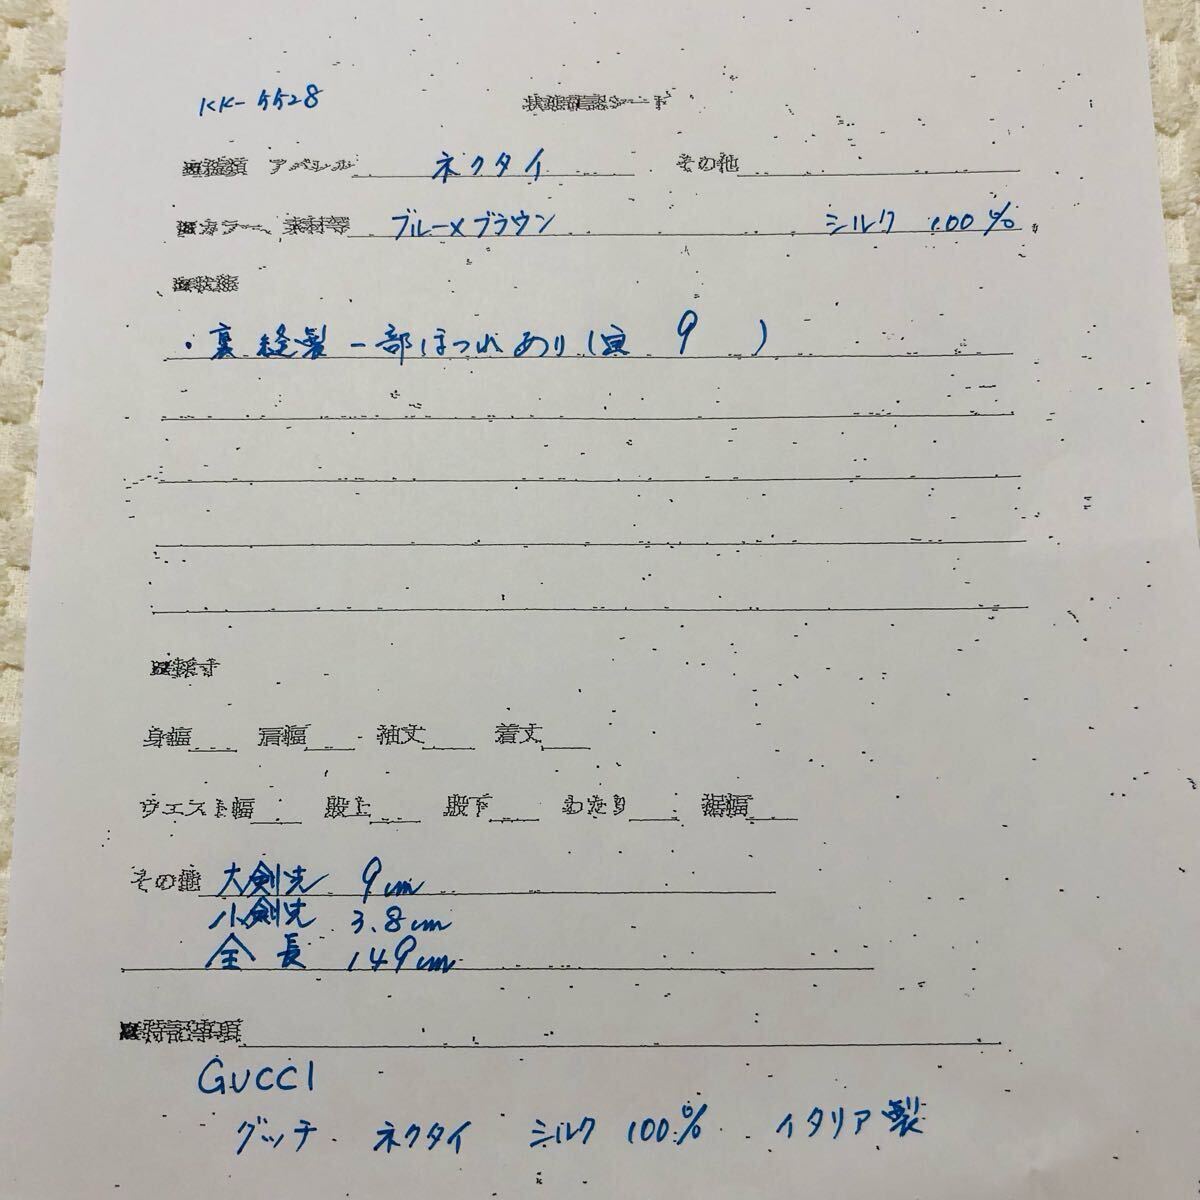 KK-5528
状態確認シート
■種類 アパレル ネクタイ その他
■カラー、素材等 ブルー×ブラウン シルク 100%
■状態
・裏 縫製 一部ほつれあり( 9 )
■採寸
身幅 肩幅 袖丈 着丈
ウエスト幅 股上 股下 わたり 裾幅
その他 大剣先 9cm
小剣先 3.8cm
全長 149cm
■特記事項
GUCCI
グッチ ネクタイ シルク 100% イタリア製